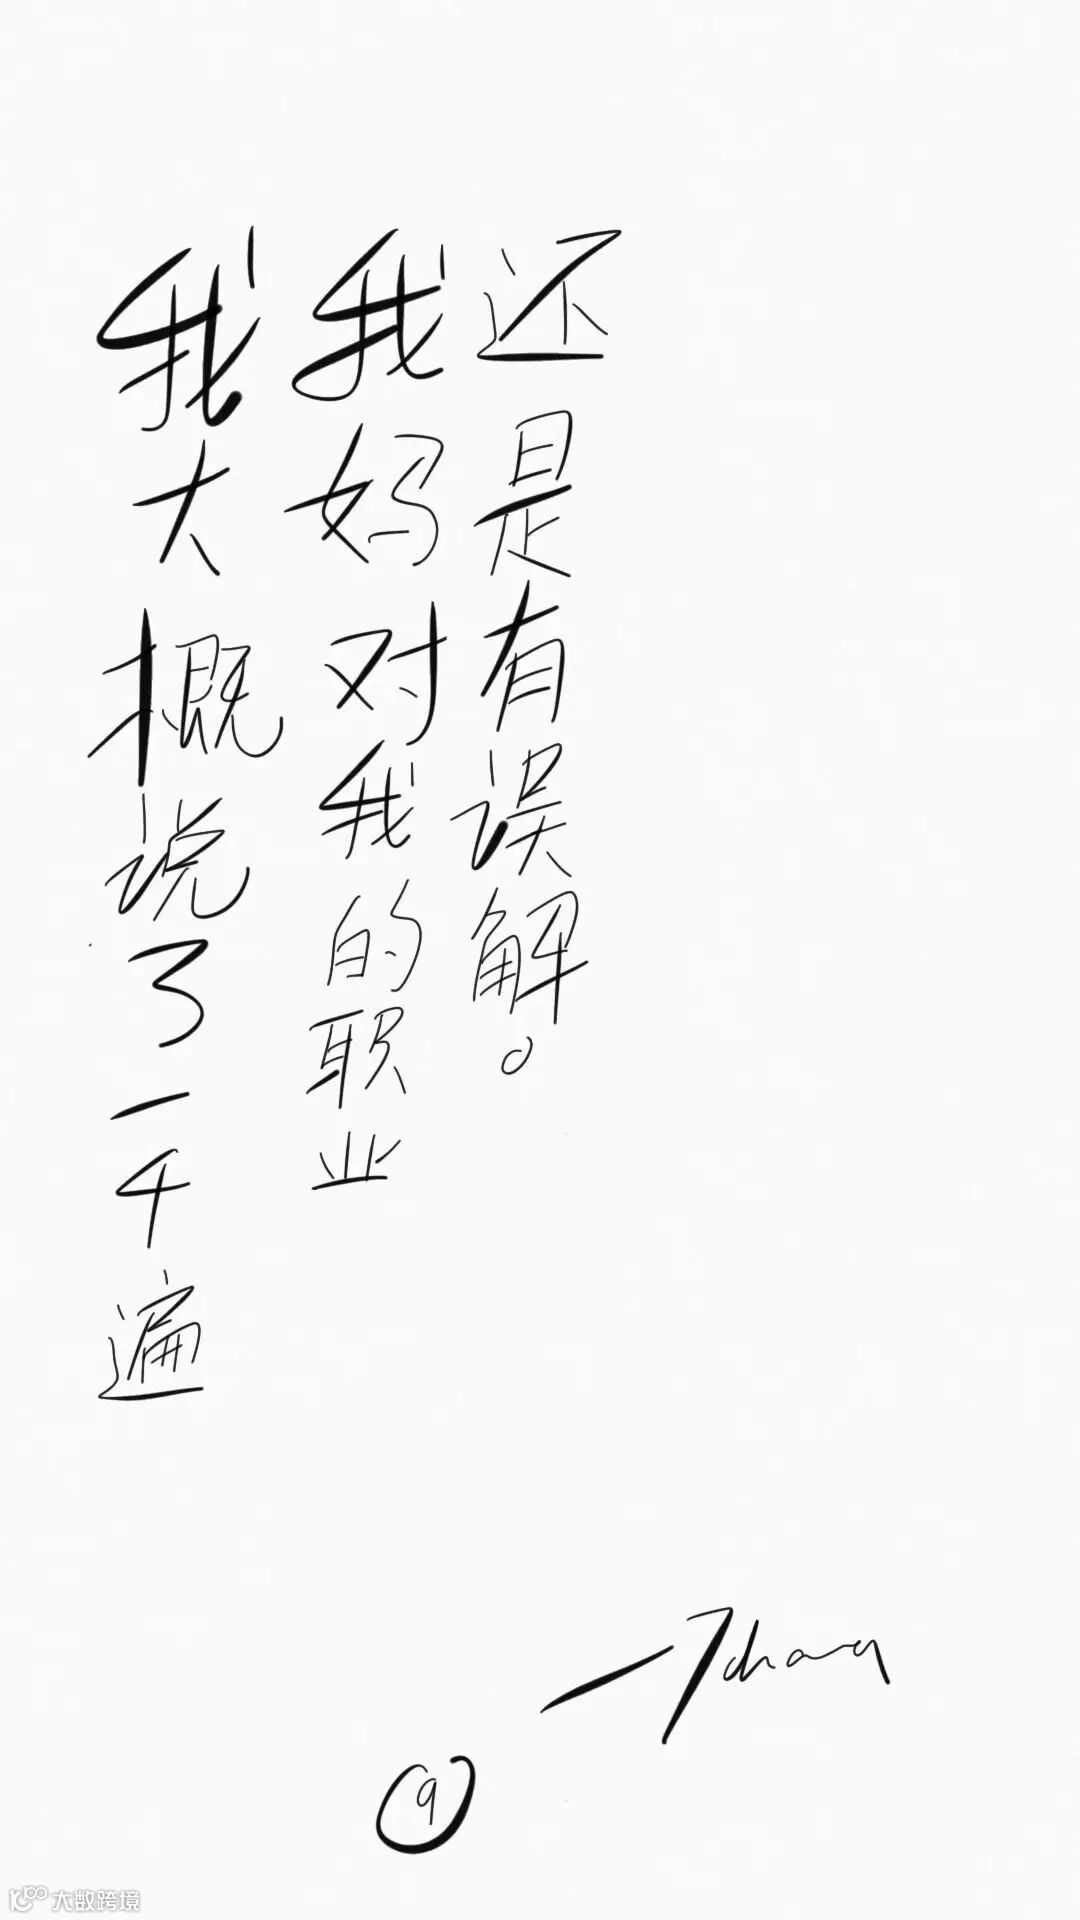 我大概说了一千遍
我妈对我的职业
还是有误解。
9
大数跨境